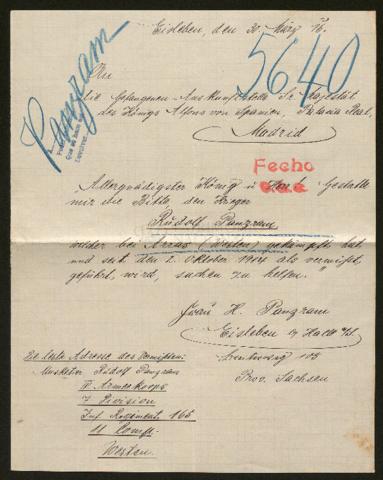 Eisleben, den 30. März 16.
5640
Panzram
An
die Gefangenen-Auskunftstelle Sr. Majestät
des Königs Alfons von Spanien,
Madrid
Fecho
Allergnädigster König u Gestatte
mir die Bitte den Krieger
Rudolf Panzram
welcher bei Arras (Westen) gekämpft hat
und seit dem 2. Oktober 1914 als vermißt,
geführt, wird, suchen zu helfen."
Frau H. Panzram
Eisleben b/ Halle a/S
108
Prov. Sachsen
Die letzte Adresse des Vermißten:
Musketier Rudolf Panzram
IV Armeekorps
7 Division
Inf. Regiment 165
11 Comp.
Westen.